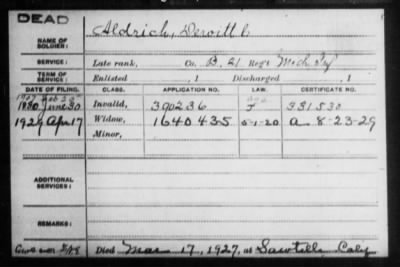 DEAD
NAME OF SOLDIER: Aldrich, Dewitt C
SERVICE: Late rank, Co. B, 21 Reg't Mich Inf
TERM OF SERVICE: Enlisted , 1 Discharged , 1
DATE OF FILING. CLASS. APPLICATION NO. LAW. CERTIFICATE NO.
1880 June 30 Invalid, 390236 331530
1927 Apr 17 Widow, 1640435 5-1-20 a 8-23-29
Minor,
ADDITIONAL SERVICES:
REMARKS:
Died Mar 17, 1927, at Sawtelle Calif